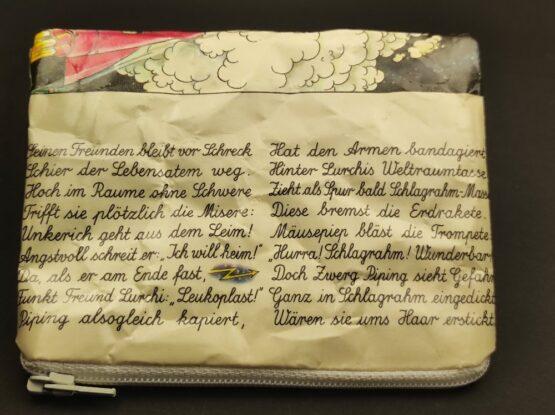 Seinen Freunden bleibt vor Schreck
Schier der Lebensatem weg.
Hoch im Raume ohne Schwere
Trifft sie plötzlich die Misere:
Unkerich geht aus dem Leim!
Angstvoll schreit er: „Ich will heim!"
Da, als er am Ende fast,
Funkt Freund Lurchi: „Leukoplast!"
Piping alsogleich kapiert,
Hat den Armen bandagiert,
Hinter Lurchis Weltraumtasse
Zieht als Spur bald Schlagrahm-Masse
Diese bremst die Erdrakete.
Mäusepiep bläst die Trompete:
„Hurra! Schlagrahm! Wunderbar!
Doch Zwerg Piping sieht Gefahr
Ganz in Schlagrahm eingedickt
Wären sie ums Haar erstickt.